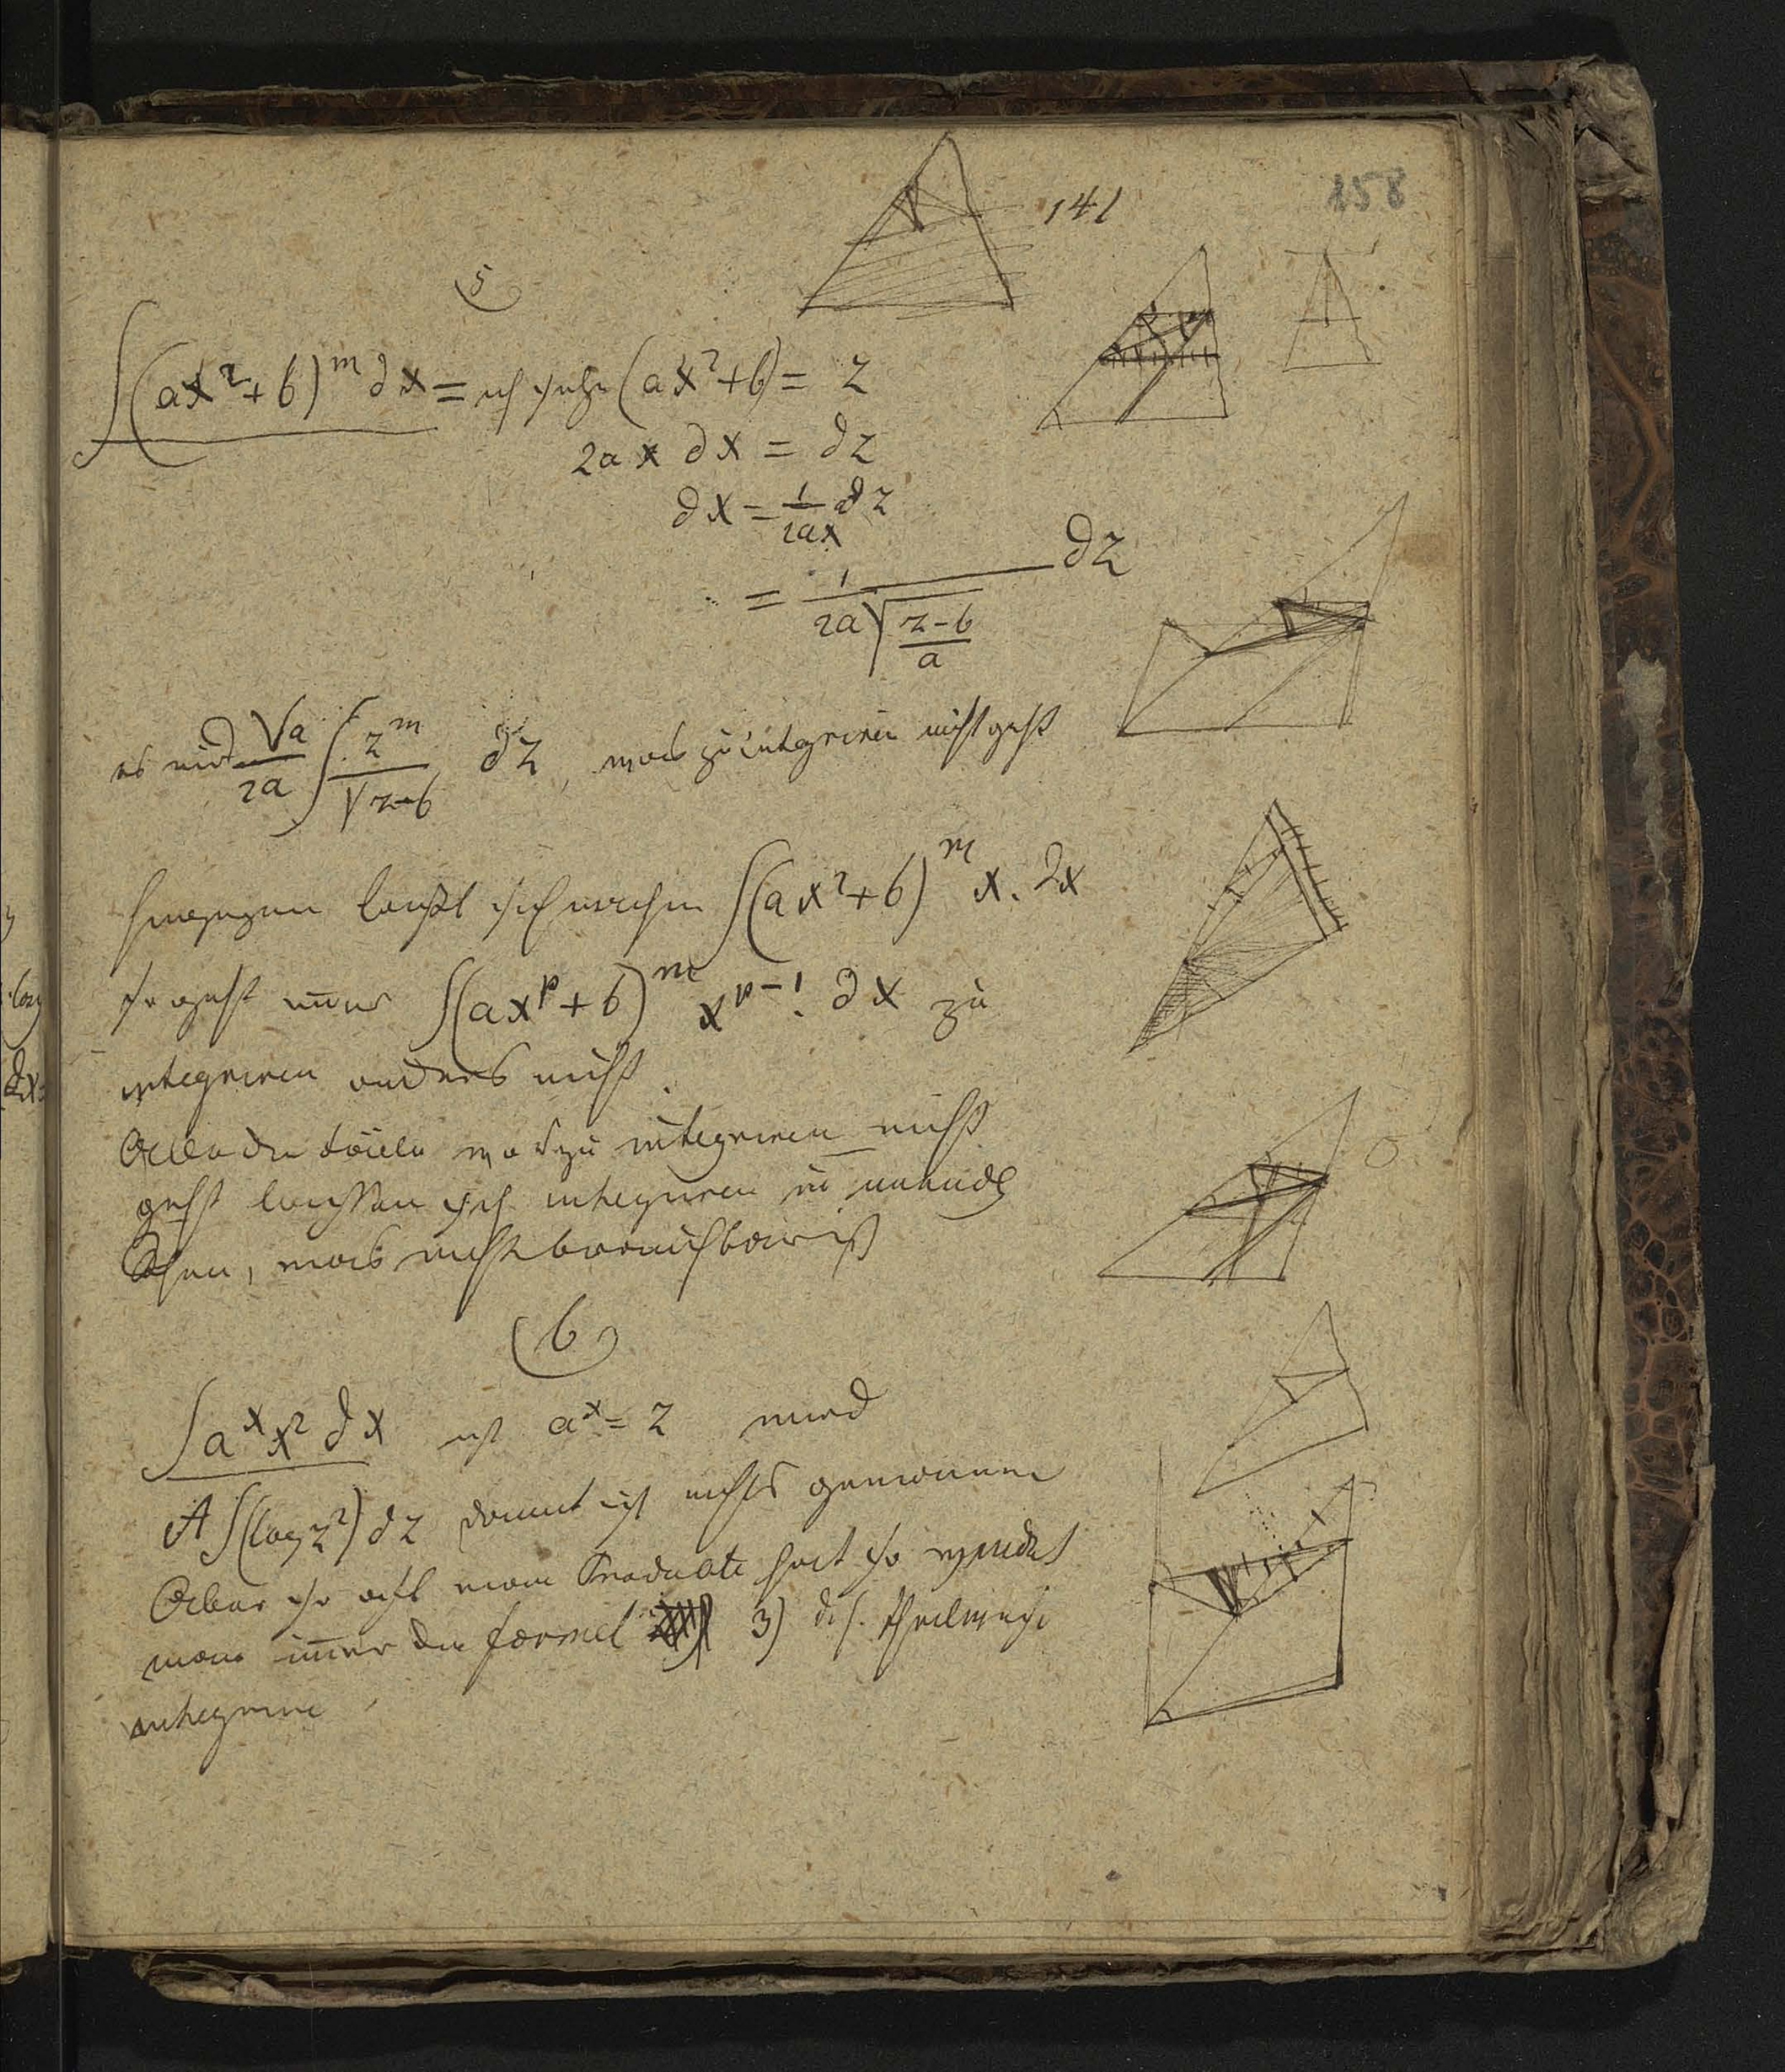 141
158
5
∫(ax²+b)^m ∂x = ich setze (ax²+b) = z
2ax ∂x = ∂z
∂x = 1/2ax ∂z
= 1/(2a√((z-b)/a)) ∂z
es wird √a/2a ∫ z^m/√(z-b) ∂z, was zu integriren nicht geht
hingegen laeßt sich machen ∫(ax²+b)^m x. ∂x
so geht nur ∫(ax^p+b)^m x^(p-1). ∂x zu
integriren anders nicht.
Alle die was zu integriren nicht
geht lassen sich integriren in unendl
Reihen, was nicht brauchbar ist
6
∫a^x x² ∂x ist a^x = z wird
A∫(log z²) ∂z damit ist nichts gewonnen
Aber so oft man Producte hat so wendet
man immer die formel 3) d.h. theilweise
integrire